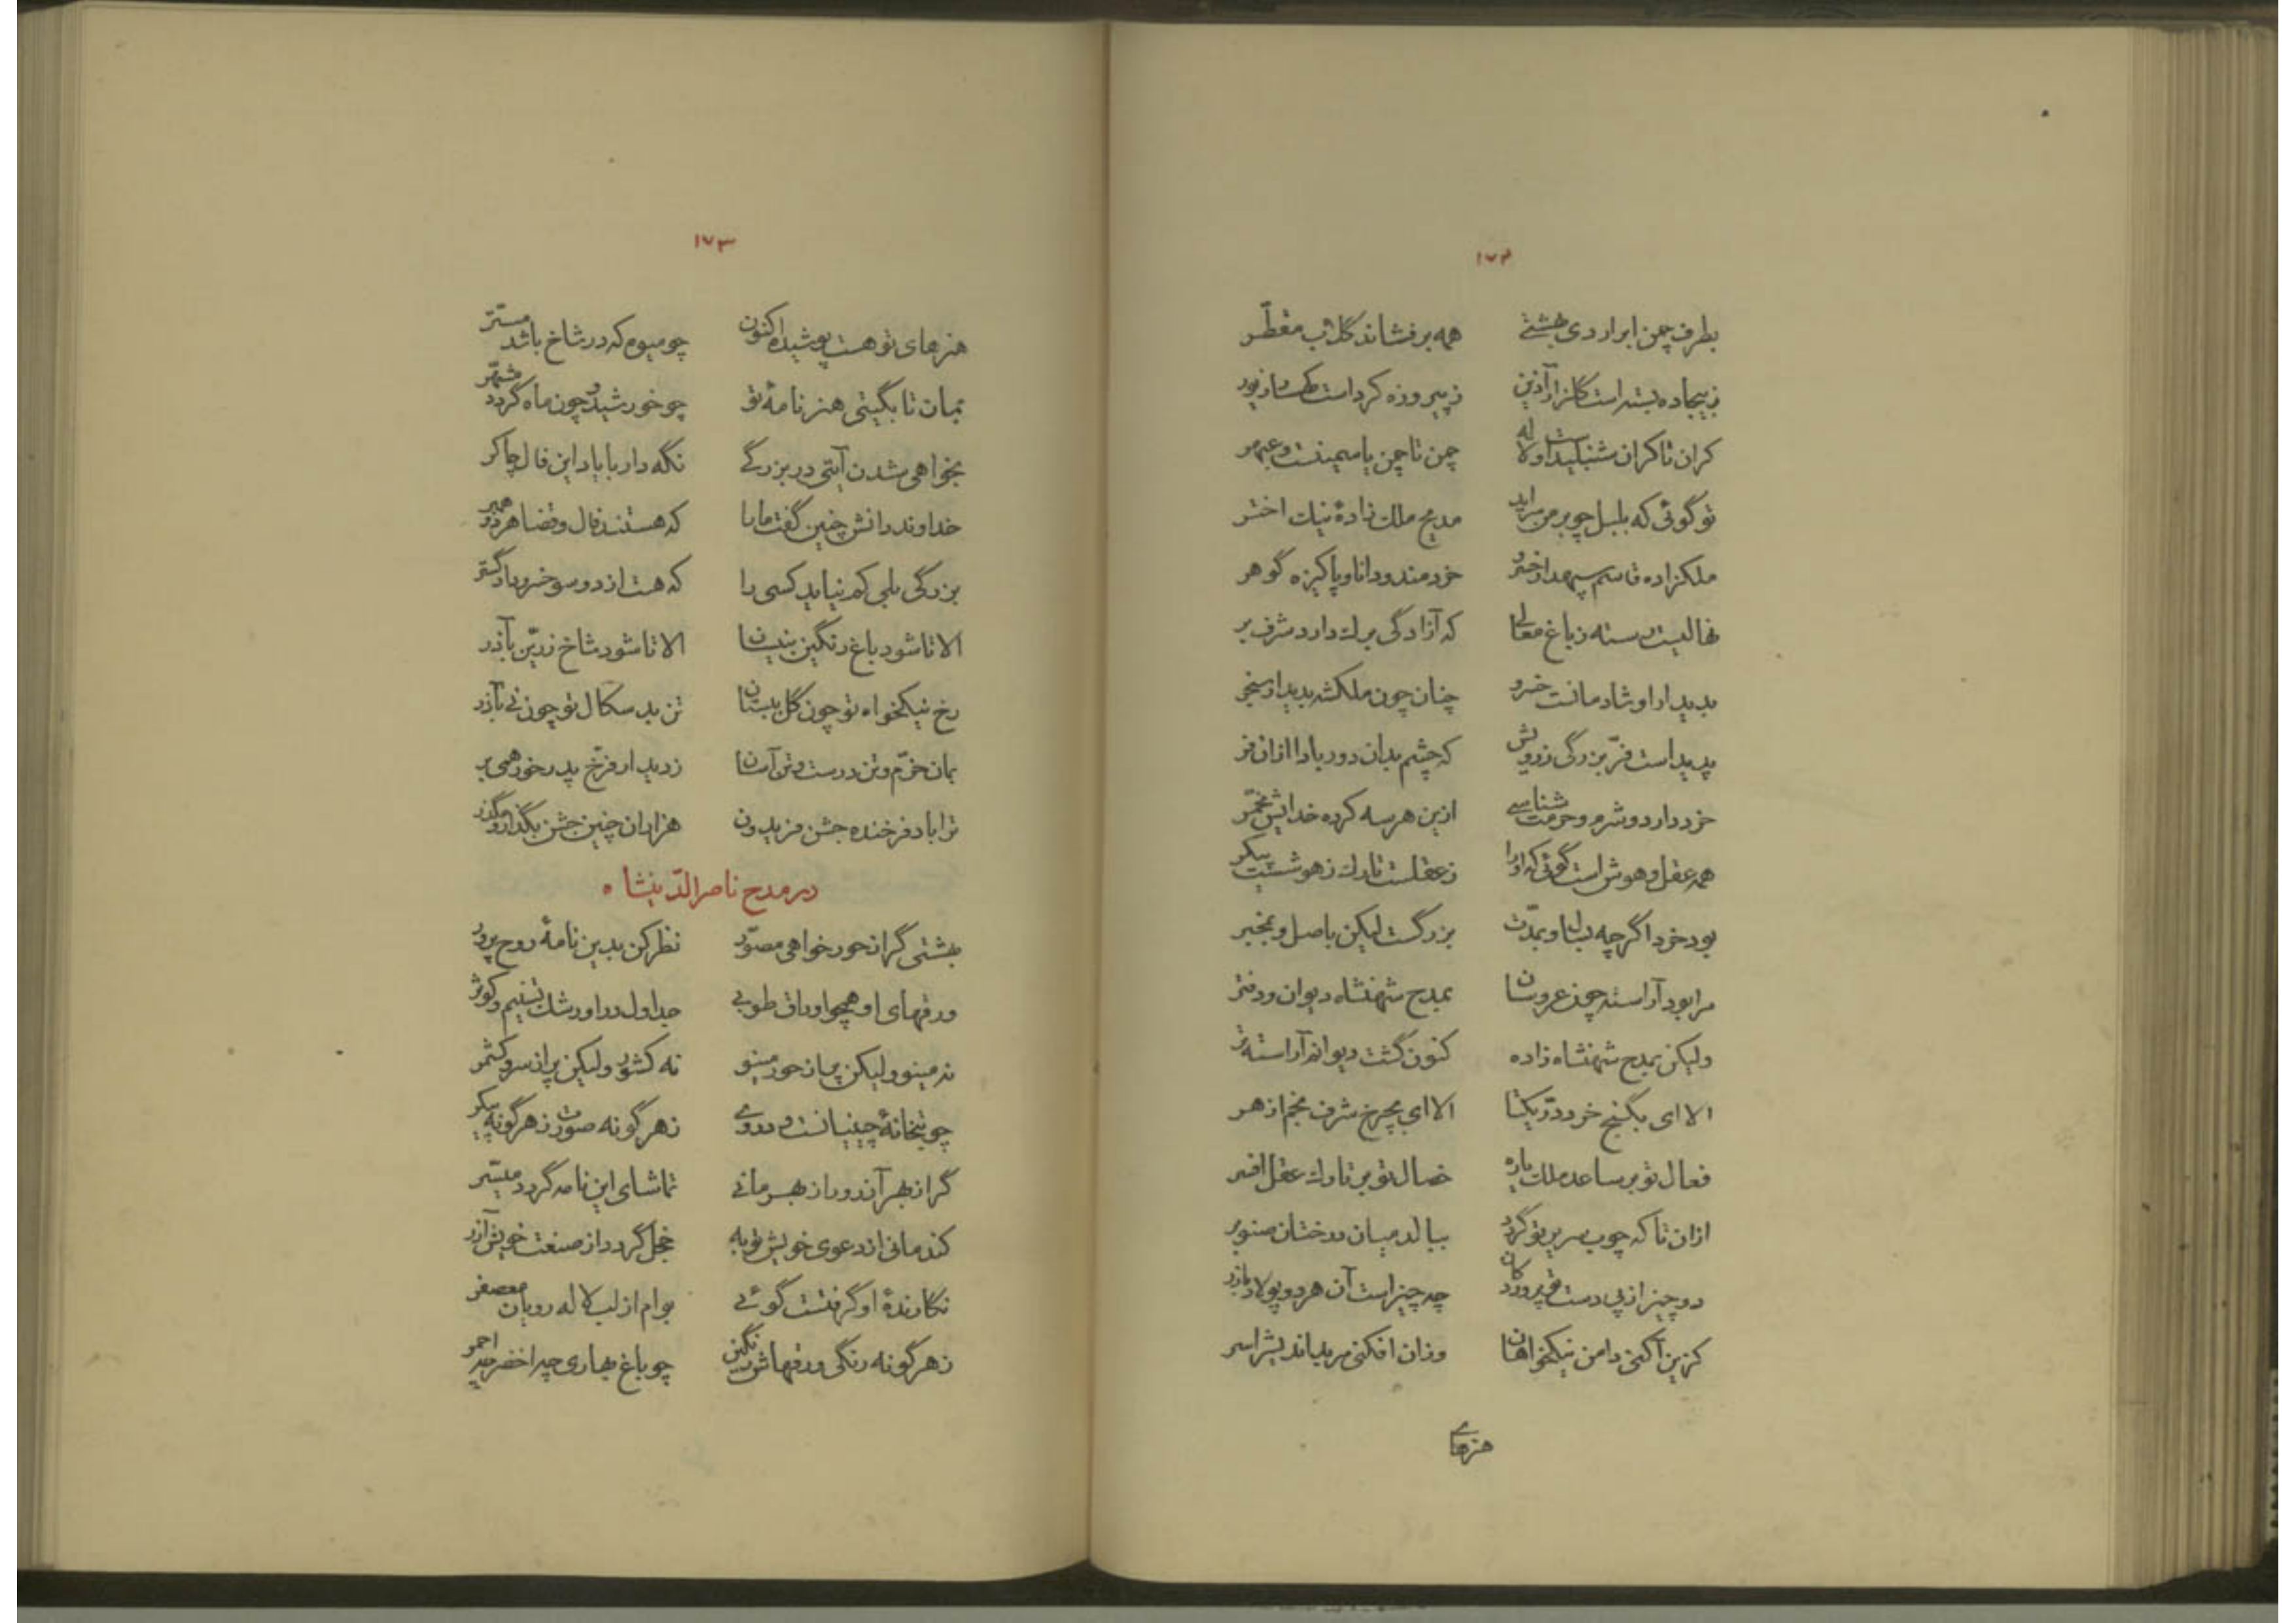 ۱۷۲
بطرف چمن ابر اردی بهشتی همه برفشاند گلاب مقطّر
ز بیجاده بسته است گلزار آذین ز پیروزه کرد است زیور
کران تا کران شنبلید است و لاله چمن تا چمن یاسمینست و عبهر
تو گوئی که بلبل چو بر من سراید مدیح ملک زادهٔ نیک اختر
ملکزاده قاسم سپهدار خسرو خردمند و دانا و پاکیزه گوهر
نهالیست رسته ز باغ معالی که آزادگی برک دارد شرف بر
بدیدار او شادمانست خسرو چنان چون ملکشه بدیدار سنجر
پدید است فرّ بزرگی ز رویش که چشم بدان دور بادا ازان فر
خرد دارد و شرم و حرمت شناسی ازین هرسه کرده خدایش مخمّر
همه عقل و هوش است گوئی که او را ز عقلست تارک ز هوشست پیکر
بود خرد اگرچه بسال و بمدّت بزرگست لیکن باصل و بمخبر
مرا بود آراسته چون عروسان بمدح شهنشاه دیوان و دفتر
ولیکن بمدح شهنشاه زاده کنون گشت دیوانم آراسته تر
الا ای بگنج خرد درّ یکتا الا ای بچرخ شرف نجم ازهر
فعال تو بر ساعد ملک یاره خصال تو بر تارک عقل افسر
ازان تا که چوب سریر تو گردد ببالد میان درختان صنوبر
دو چیز از پی دست تو پرورد کان چه چیز است آن هردو پولاد با زر
کزین آکنی دامن نیکخواهان وزان افکنی مر بداندیش را سر
هنرهای
۱۷۳
هنرهای تو هست پوشیده اکنون چو میوه که در شاخ باشد مستّر
بمان تا بگیتی هنر نامهٔ تو چو خورشید و چون ماه گردد مشهّر
بخواهی شدن آیتی در بزرگی نگه دار با یاد این فال چاکر
خداوند دانش چنین گفت ما را که هستند فال و قضا هردو همبر
بزرگی بلی کم نیاید کسی را که هست از دو سو خسرو دادگستر
الا تا شود باغ رنگین بنیسان الا تا شود شاخ زرّین بآذر
رخ نیکخواه تو چون گل بنیسان تن بد سکال تو چون نی بآذر
بمان خرّم و تن درست و تن آسان ز دیدار فرّخ پدر خور همی بر
ترا باد فرخنده جشن فریدون هزاران چنین جشن بگذار و مگذر
در مدح ناصرالدّینشاه
بهشتی گر از حور خواهی مصوّر نظر کن بدین نامهٔ روح پرور
ورقهای او همچو اوراق طوبی جداول درو رشک تسنیم و کوثر
نه مینو ولیکن پر از حور مینو نه کشور ولیکن پر از سرو کشمر
چو بتخانهٔ چینیانست در وی ز هر گونه صورت ز هر گونه پیکر
گر از بهر آزر ور از بهر مانی تماشای این نامه گردد میسّر
کند مانی از دعوی خویش توبه خجل گردد از صنعت خویش آزر
نگارندهٔ او گرفتست گوئی بوام از لب لاله رویان معصفر
ز هر گونه رنگی ورقهاش رنگین چو باغ بهاری چه اخضر چه احمر